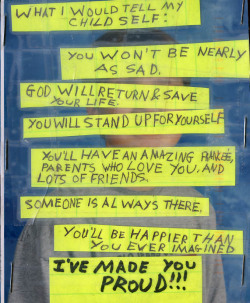 WHAT I WOULD TELL MY
CHILD SELF:
YOU WON'T BE NEARLY
AS SAD.
GOD WILL RETURN & SAVE
YOUR LIFE.
YOU WILL STAND UP FOR YOURSELF
YOU'LL HAVE AN AMAZING FIANCÉE,
PARENTS WHO LOVE YOU, AND
LOTS OF FRIENDS.
SOMEONE IS ALWAYS THERE.
YOU'LL BE HAPPIER THAN
YOU EVER IMAGINED
I'VE MADE YOU
PROUD!!!